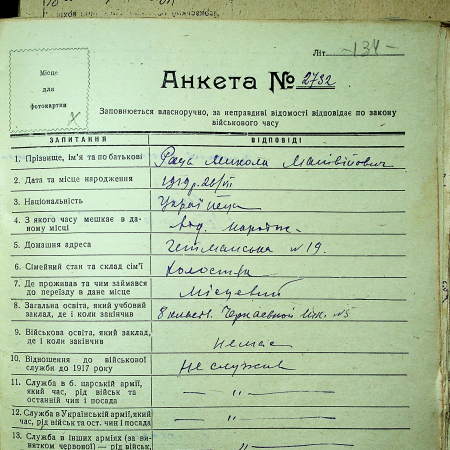 Літ. -134-
Місце
для
фотокартки
Анкета № 2732
Заповнюється власноручно, за неправдиві відомості відповідає по закону
військового часу
ЗАПИТАННЯ ВІДПОВІДІ
1. Прізвище, ім'я та по батькові Микола Матвійович
2. Дата та місце народження 1919 р. 26/VI
3. Національність Українець
4. З якого часу мешкає в даному місці від народж.
5. Домашня адреса Гетманська №19.
6. Сімейний стан та склад сім'ї Холостяк
7. Де проживав та чим займався
до переїзду в дане місце Місцевий
8. Загальна освіта, який учбовий
заклад, де і коли закінчив 8 класів. шк. №5
9. Військова освіта, який заклад,
де і коли закінчив немає
10. Відношення до військової
служби до 1917 року Не служив
11. Служба в б. царській армії,
який час, рід військ та
останній чин і посада — „ —
12. Служба в Українській армії, який
час, рід військ та ост. чин і посада — „ —
13. Служба в інших арміях (за ви-
нятком червоної) — рід військ, „ —